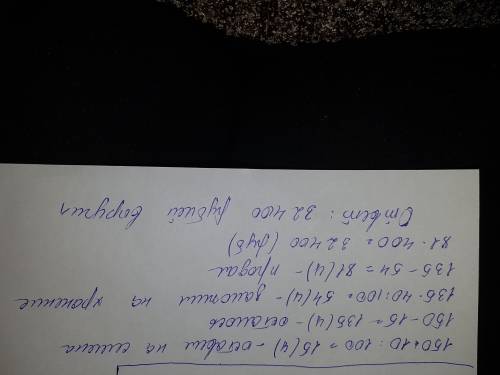 150·10 : 100 = 15 (ц) - оставил на семена
150 - 15 = 135 (ц) - осталось
135·40:100 = 54 (ц) - заложил на хранение
135 - 54 = 81 (ц) - продал
81·400 = 32400 (руб)
Ответ: 32400 рублей выручил